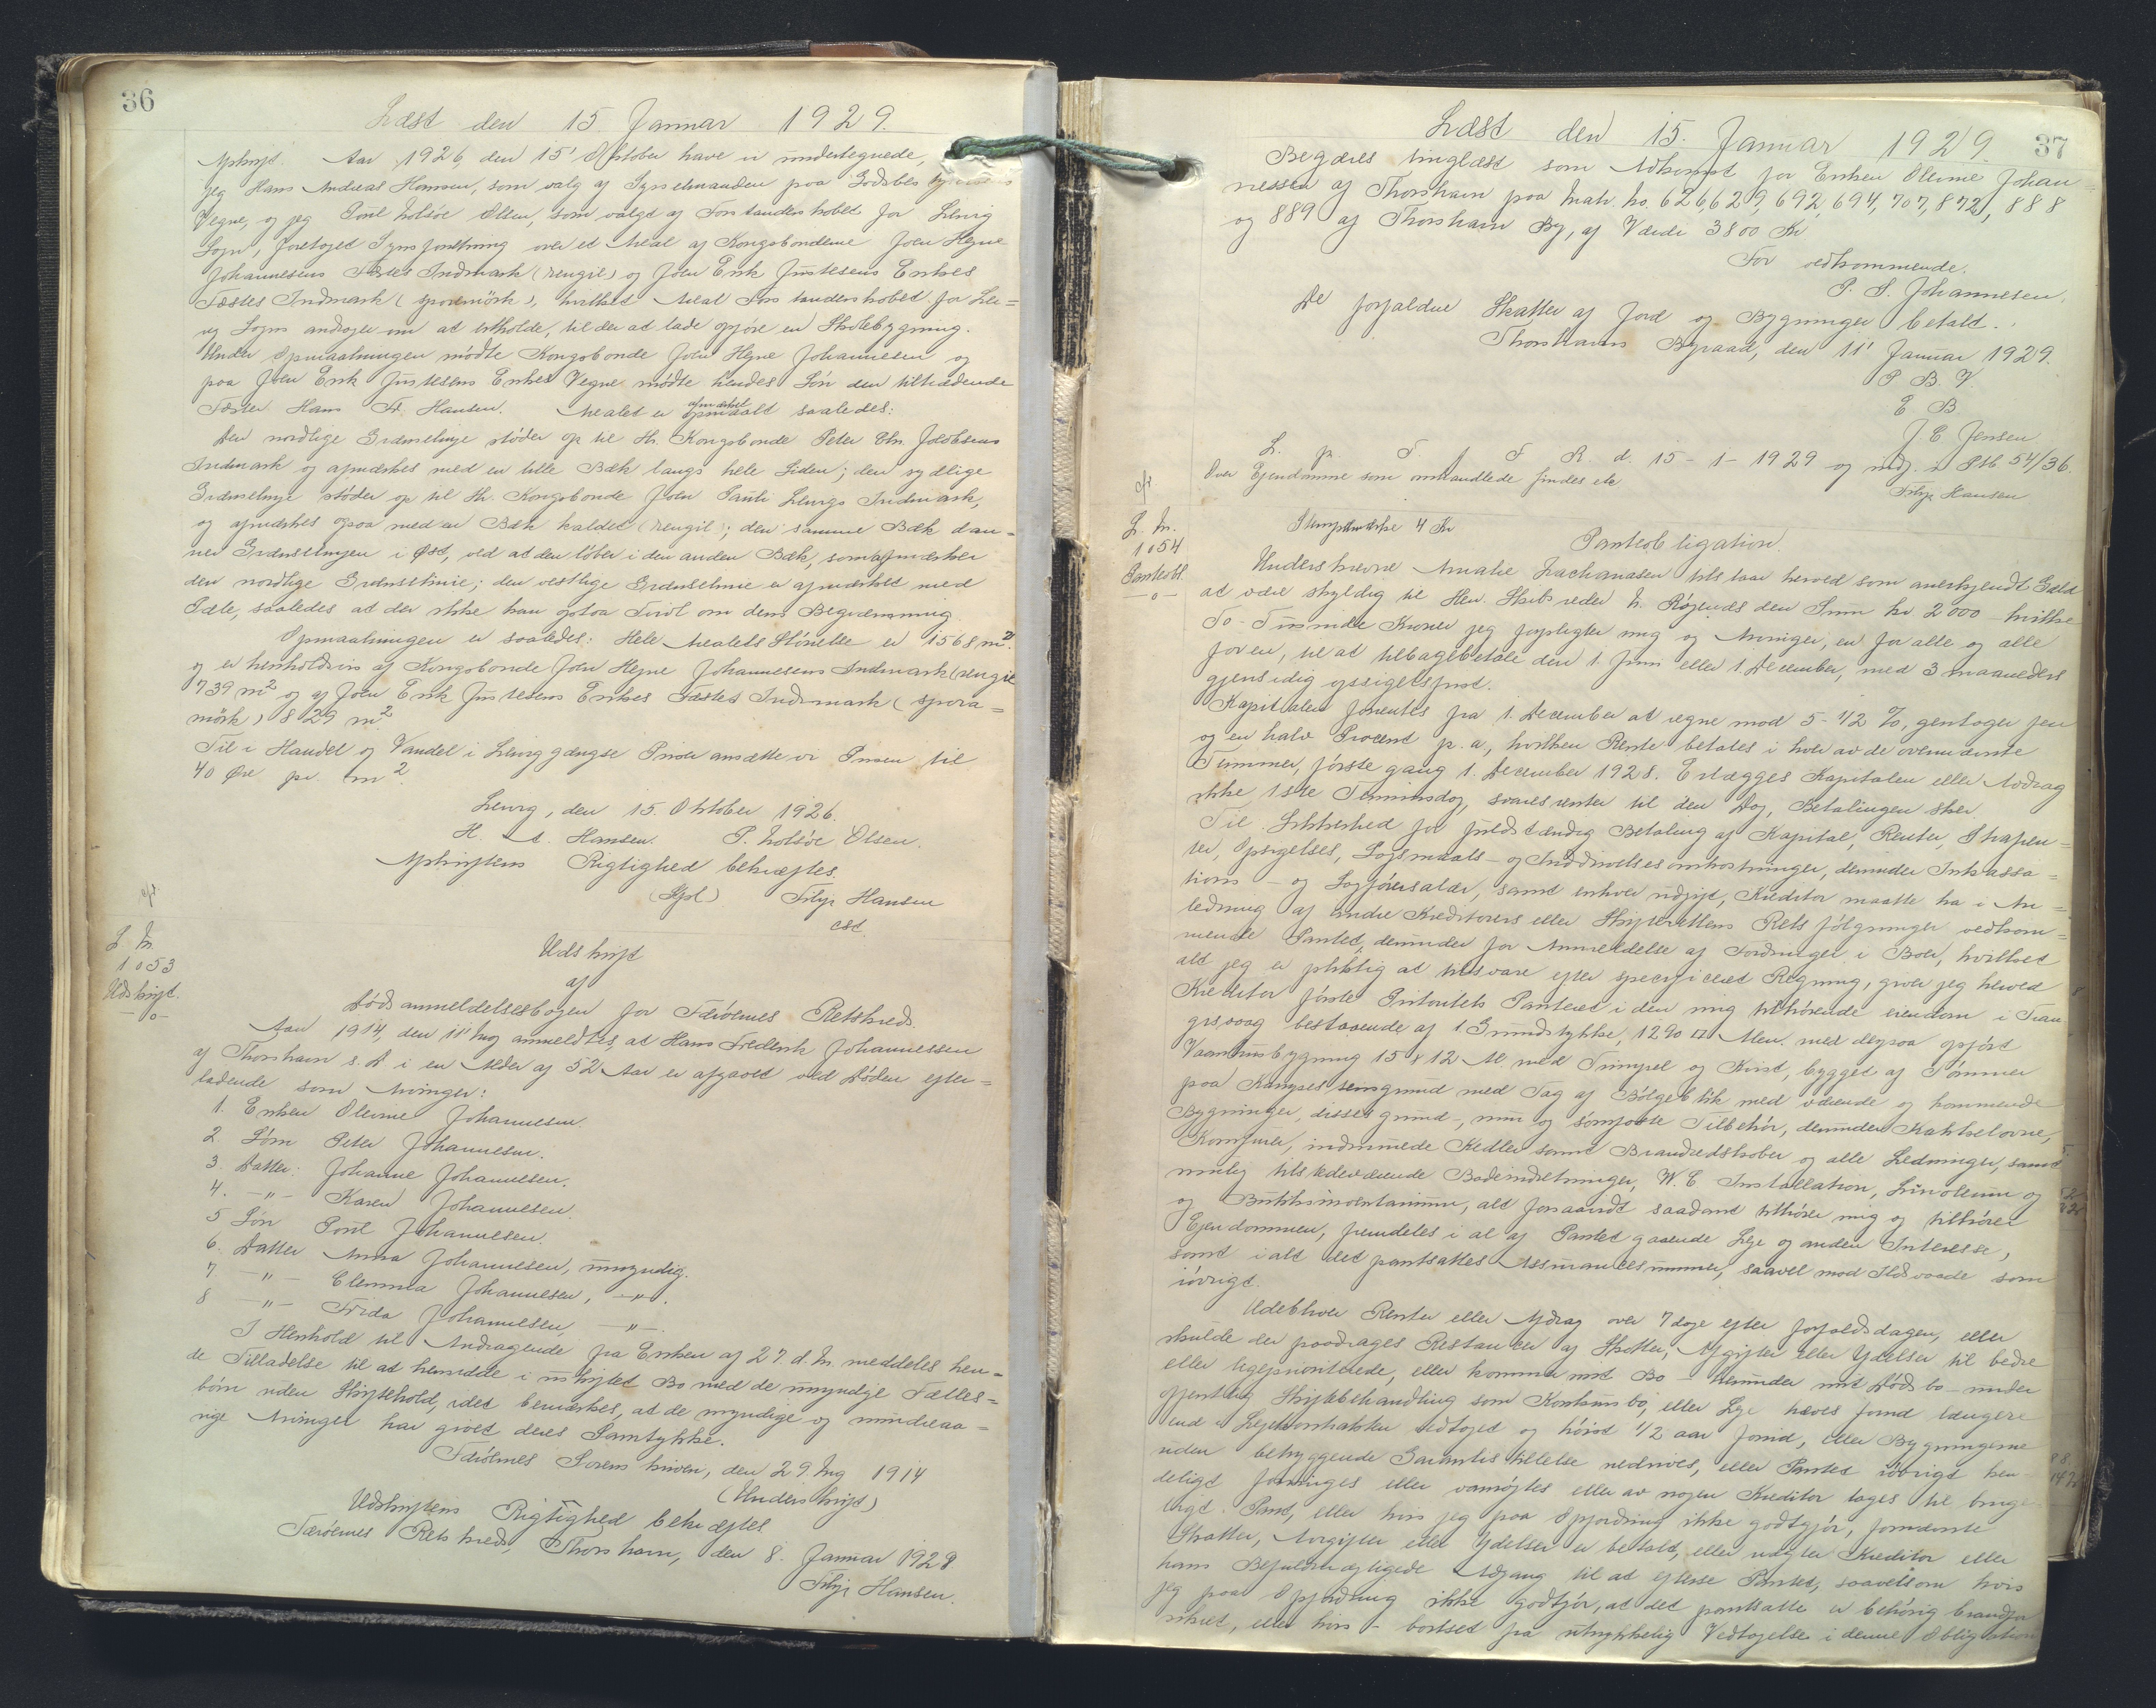 36
Læst den 15. Januar 1929.
Afskrift. Aar 1926, den 15' Oktober have vi undertegnede,
jeg Hans Andreas Hansen, som valg af Sysselmanden paa Godsbes
Vegne, og jeg Poul Holsöe Olsen, som valgt af Forstanderskabet for Leirvig
Sogn, foretaget Synsforretning over et Areal af Kongsbonderne Joen Hejne
Johannesens Fæstes Indmark (rengil) og Joen Erik Justesens Enkes
Fæstes Indmark (sporamörk), hvilket Areal Forstanderskabet for Lir=
vig Sogn andrager om at erholde, til der at lade opföre en Skolebygning.
Under Opmaalningen mödte Kongsbonde Joen Hejne Johannesen og
paa Joen Erik Justesens Enkes Vegne mödte hendes Sön den tiltrædende
Fæster Hans Fr. Hansen. Arealet er afmærket opmaalt saaledes:
Den nordlige Grænselinje stöder op til Hr. Kongsbonde Peter Chr. Jacobsens
Indmark og afmærkes med en lille Bæk langs hele Siden; den sydlige
Grænselinje stöder op til Hr. Kongsbonde Joen Pauli Leirvigs Indmark,
og afmærkes ogsaa med en Bæk kaldet (rengil); den samme Bæk dan-
ner Grænselinjen i Øst, ved at den löber i den anden Bæk, som afmærker
den nordlige Grænselinie; den vestlige Grænselinie er afmærket med
Pæle, saaledes at der ikke kan opstaa Tvivl om dens Begrænsning.
Opmaalningen er saaledes: Hele Arealets Störrelse er 1568 m².
og er henholdsvis af Kongsbonde Joen Hejne Johannesens Indmark (rengil
739 m² og af Joen Erik Justesens Enkes Fæstes Indmark (spora=
mörk) 829 m²
Til i Handel og Vandel i Leirvig gængse Priser ansætte vi Prisen til
40 Øre pr. m².
Leirvig, den 15. Oktober 1926.
H. A. Hansen. P. Holsöe Olsen.
Afskriftens Rigtighed bekræftes.
(Sgl) Filip Hansen
cst.
cfr
L. Nr.
1053
Udskrift.
-o-
Udskrift
af
Dödsanmeldelsesbogen for Færöernes Retskreds.
Aar 1914, den 11' Aug anmeldtes, at Hans Frederik Johannessen
af Thorshavn s. D. i en Alder af 52 Aar er afgaaet ved Döden efter=
ladende som Arvinger:
1. Enken Olevine Johannesen.
2 Sön Peter Johannesen.
3. Datter: Johanne Johannesen.
4. -"- Karen Johannesen.
5 Sön Poul Johannesen.
6. Datter Anna Johannesen, umyndig.
7 -"- Clemma Johannesen, -"-.
8 -"- Frida Johannesen -"-.
I Henhold til Andragende fra Enken af 27. d. M. meddeles hen-
de Tilladelse til at hensidde i uskiftet Bo med de umyndige Fælles=
börn uden Skiftehold, idet bemærkes, at de myndige og mindreaa=
rige Arvinger har givet deres Samtykke.
Færöernes Sorenskriveri, den 29. Aug 1914
(Underskrift)
Udskriftens Rigtighed bekræftes
Færöernes Retskreds, Thorshavn, den 8. Januar 1929
Filip Hansen.
Læst den 15. Januar 1929. 37
Begæres tinglæst som Adkomst for Enken Olevine Johan
nessen af Thorshavn paa Matr. No. 626, 629, 692, 694, 707, 872, 888
og 889 af Thorshavn By, af Værdi 3800 Kr
For vedkommende.
P. S. Johannesen,
De forfaldne Skatter af Jord og Bygninger betalt.
Thorshavns Byraad, den 11' Januar 1929.
P. B. V.
E B
J. C. Jensen
L. p. T. f F R. d. 15-1-1929 og indf. i Ptb 54/36.
Over Ejendomme som omhandlede findes etc
Filip Hansen
cfr
L. Nr.
1054
Panteobl.
-o-
Stempelmærke 4 Kr
Panteobligation.
Underskrevne Amalie Zachariasen tilstaar herved som anerkjendt Gæld
at være skyldig til Herr Skibsreder N. Röjenes den Sum kr 2000 hvilke
To-Tusinde Kroner jeg forpligter mig og Arvinger, en for alle og alle
for en, til at tilbagebetale den 1. Juni eller 1 December, med 3 maaneders
gjensidig opsigelsfrist.
Kapitalen forrentes fra 1. December at regne mod 5-1/2 %, gentager fem
og en halv Procent p. a., hvilken Rente betales i hver av de ovennævnte
Terminer, förste gang 1. December 1928. Erlægges Kapitalen eller Avdrag
ikke 1ste Terminsdag, svares renter til den Dag, Betalingen sker.
Til Sikkerhed for fuldstændig Betaling af Kapital, Renter, Straffen=
ter, Opsigelses, Sögsmaals- og Inddrivelsesomkostninger, derunder Inkassa=
tions- og Sagförersalær, samt enhver udgift, Kreditor maatte ha i An=
ledning af andre Kreditorers eller Skifterettens Retsfölgninger vedkom=
mende Pantet, derunder for Anmeldelse af Fordringer i Boer, hvilket
alt jeg er pliktig at tilsvare efter specificeret Regning, giver jeg herved
Kreditor förste Prioritets Panteret i den mig tilhörende eiendom i Tran
gisvaag bestaaende af 1 Grundstykke, 1290 □ Alen. med derpaa opfört
Vaaningsbygning 15 x 12 Al. med Trempel og Kvist, bygget af Tömmer
paa Kampestensgrund med Tag af Bölgeblik med værende og kommende
Bygninger, disses grund-, mur og sömfaste Tilbehör, derunder Kakkelovne,
Komfurer, indmurede Kedler samt Brandredskaber og alle Ledninger, samt
mulig tilstedeværende Badeindretninger, W. C Installation, Linoleum og
og Butiksinventarium, alt forsaavidt saadant tilhörer mig og tilhörer
Ejendommen, fremdeles i al af Pantet gaaende Leje og anden Interesse,
samt i alt det pantsattes Assurancesummer, saavel mod Ildsvaade som
iövrigt.
Udebliver Renter eller Afdrag over 7 dage efter forfaldsdagen, eller
skulde der paadrages Restancer af Skatter, Afgifter eller Ydelser til bedre
eller ligeprioriterede, eller kommer mit Bo - herunder mit Dödsbo - under
offentlig Skiftebehandling som Konkursbo, eller Leje hæves forud længere
end i Lejekontrakten vedtaget og höjst 1/2 aar forud, eller Bygningerne
uden betryggende Garantistillelse nedrives, eller Pantet iövrigt
deligt forringes eller vanrögtes eller av nogen Kreditor tages til bruge
ligt Pant, eller hvis jeg paa Opfordring ikke godtgjör, fornævnte
Skatter, Avgifter eller Ydelser er betalt, eller nægter Kreditor eller
hans Befuldmægtigede Adgang til at efterse Pantet, saavelsom hvis
jeg paa Opfordring ikke godtgjör, at det pantsatte er behörig brandfor
sikret, eller hvis - bortset fra udtrykkelig Vedtagelse i denne Obligation